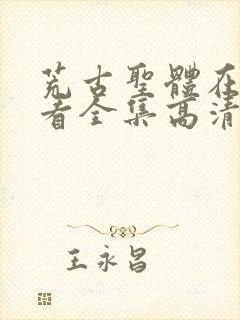 荒古聖體在
看全集高清
王永昌